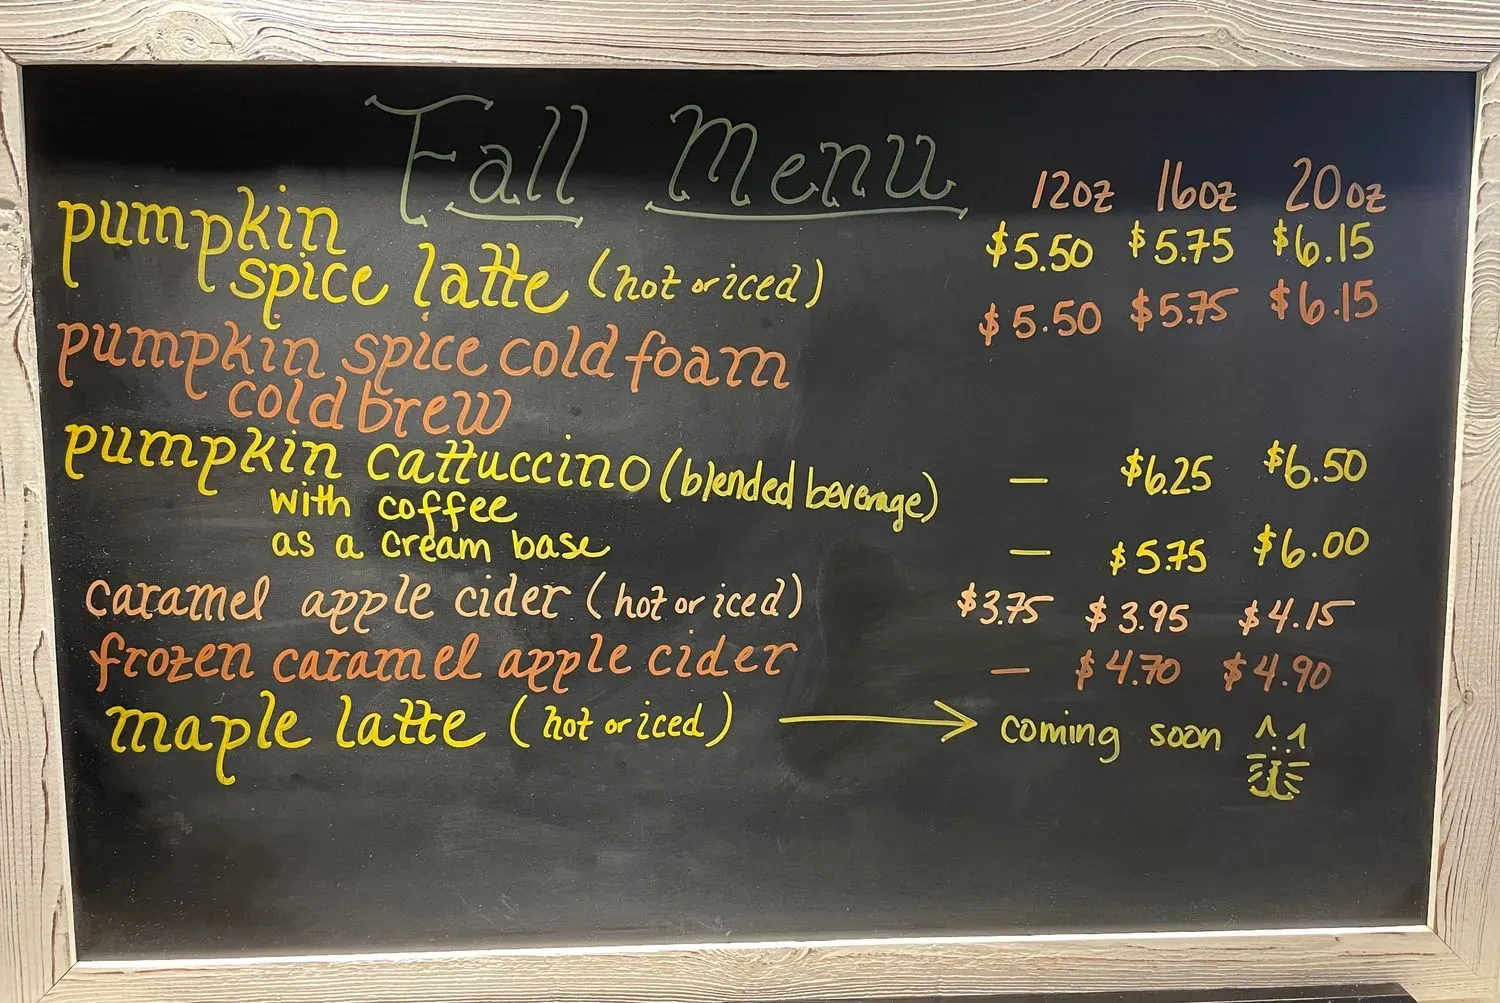 Fall Menu
12oz 16oz 20oz
pumpkin
spice latte (hot or iced) $5.50 $5.75 $6.15
pumpkin spice cold foam $5.50 $5.75 $6.15
cold brew
pumpkin cattuccino (blended beverage)
with coffee — $6.25 $6.50
as a cream base — $5.75 $6.00
caramel apple cider (hot or iced) $3.75 $3.95 $4.15
frozen caramel apple cider — $4.70 $4.90
maple latte (hot or iced) → coming soon